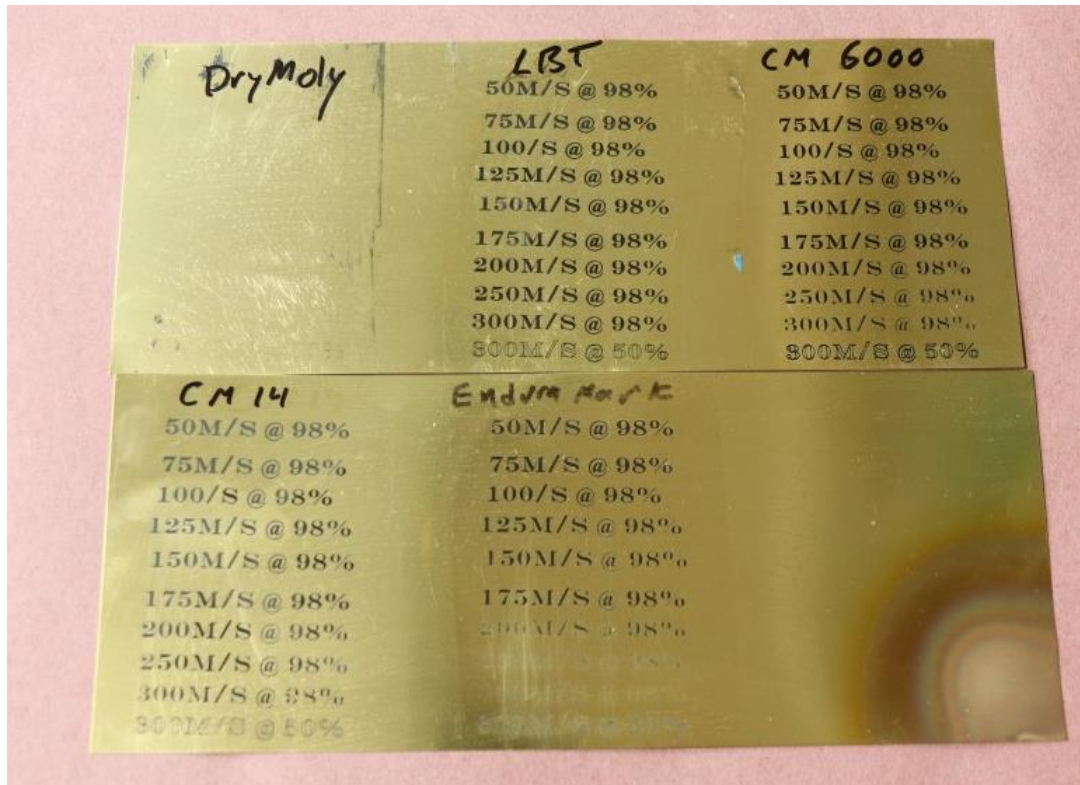 DryMoly
LBT
50M/S @ 98%
75M/S @ 98%
100/S @ 98%
125M/S @ 98%
150M/S @ 98%
175M/S @ 98%
200M/S @ 98%
250M/S @ 98%
300M/S @ 98%
300M/S @ 50%
CM 6000
50M/S @ 98%
75M/S @ 98%
100/S @ 98%
125M/S @ 98%
150M/S @ 98%
175M/S @ 98%
200M/S @ 98%
250M/S @ 98%
300M/S @ 98%
300M/S @ 50%
CM 14
50M/S @ 98%
75M/S @ 98%
100/S @ 98%
125M/S @ 98%
150M/S @ 98%
175M/S @ 98%
200M/S @ 98%
250M/S @ 98%
300M/S @ 98%
300M/S @ 50%
Enduramark
50M/S @ 98%
75M/S @ 98%
100/S @ 98%
125M/S @ 98%
150M/S @ 98%
175M/S @ 98%
200M/S @ 98%